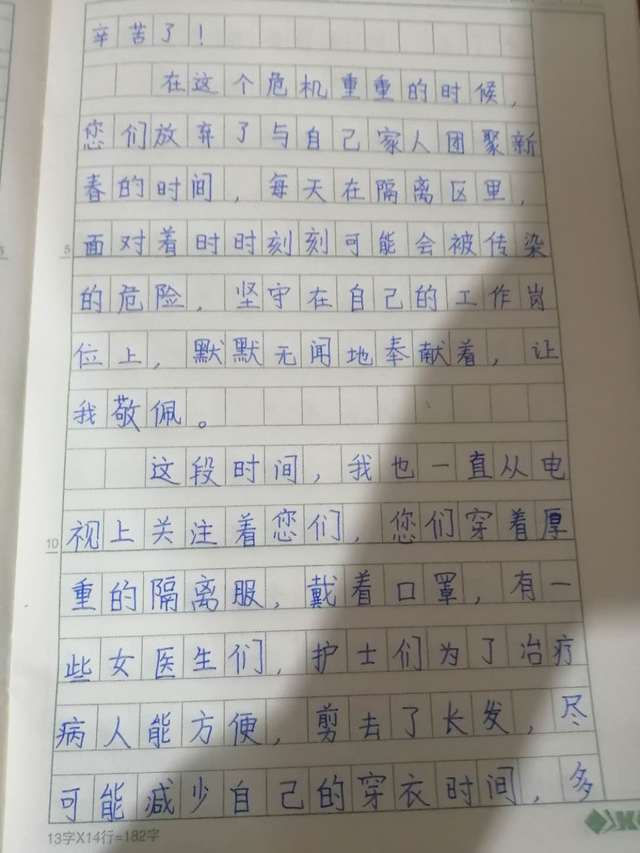 辛苦了！
在这个危机重重的时候，
您们放弃了与自己家人团聚新
春的时间，每天在隔离区里，
5 面对着时时刻刻可能会被传染
的危险，坚守在自己的工作岗
位上，默默无闻地奉献着，让
我敬佩。
这段时间，我也一直从电
10 视上关注着您们，您们穿着厚
重的隔离服，戴着口罩，有一
些女医生们，护士们为了治疗
病人能方便，剪去了长发，尽
可能减少自己的穿衣时间，多
13字X14行=182字